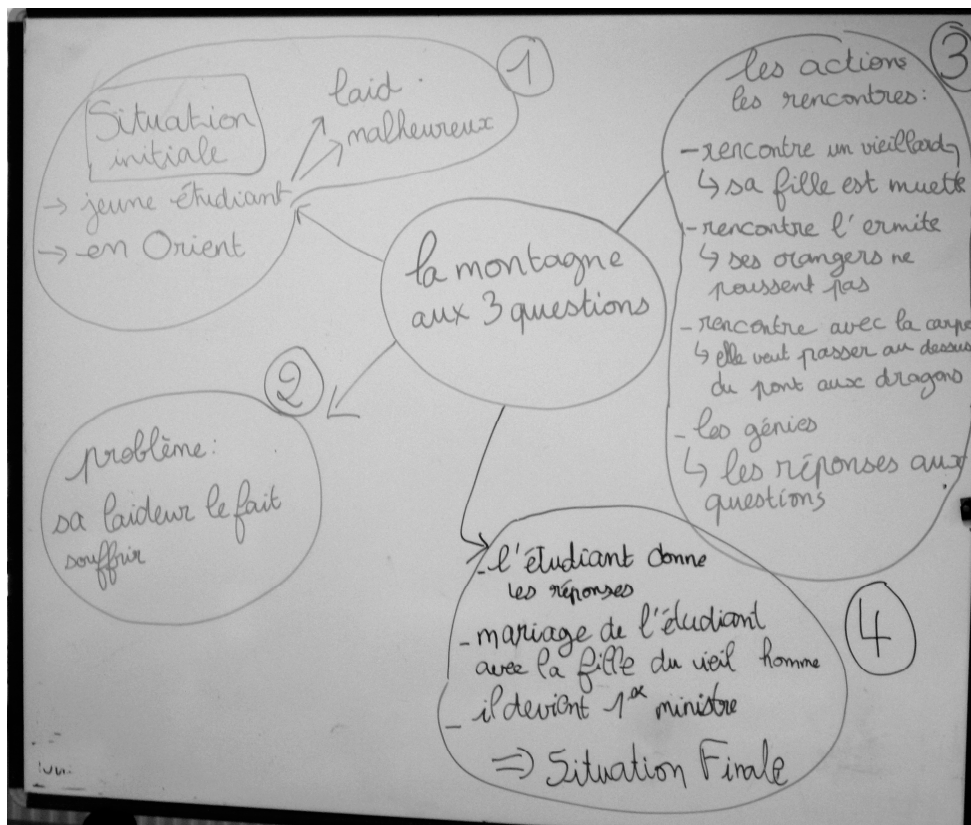 la montagne
aux 3 questions
1
Situation
initiale
→ jeune étudiant
→ en Orient
laid
malheureux
2
problème:
sa laideur le fait
souffrir
3
les actions
les rencontres:
- rencontre un vieillard
↳ sa fille est muette
- rencontre l'ermite
↳ ses orangers ne
poussent pas
- rencontre avec la carpe
↳ elle veut passer au dessus
du pont aux dragons
- les génies
↳ les réponses aux
questions
4
- l'étudiant donne
les réponses
- mariage de l'étudiant
avec la fille du vieil homme
- il devient 1er ministre
⇒ Situation Finale